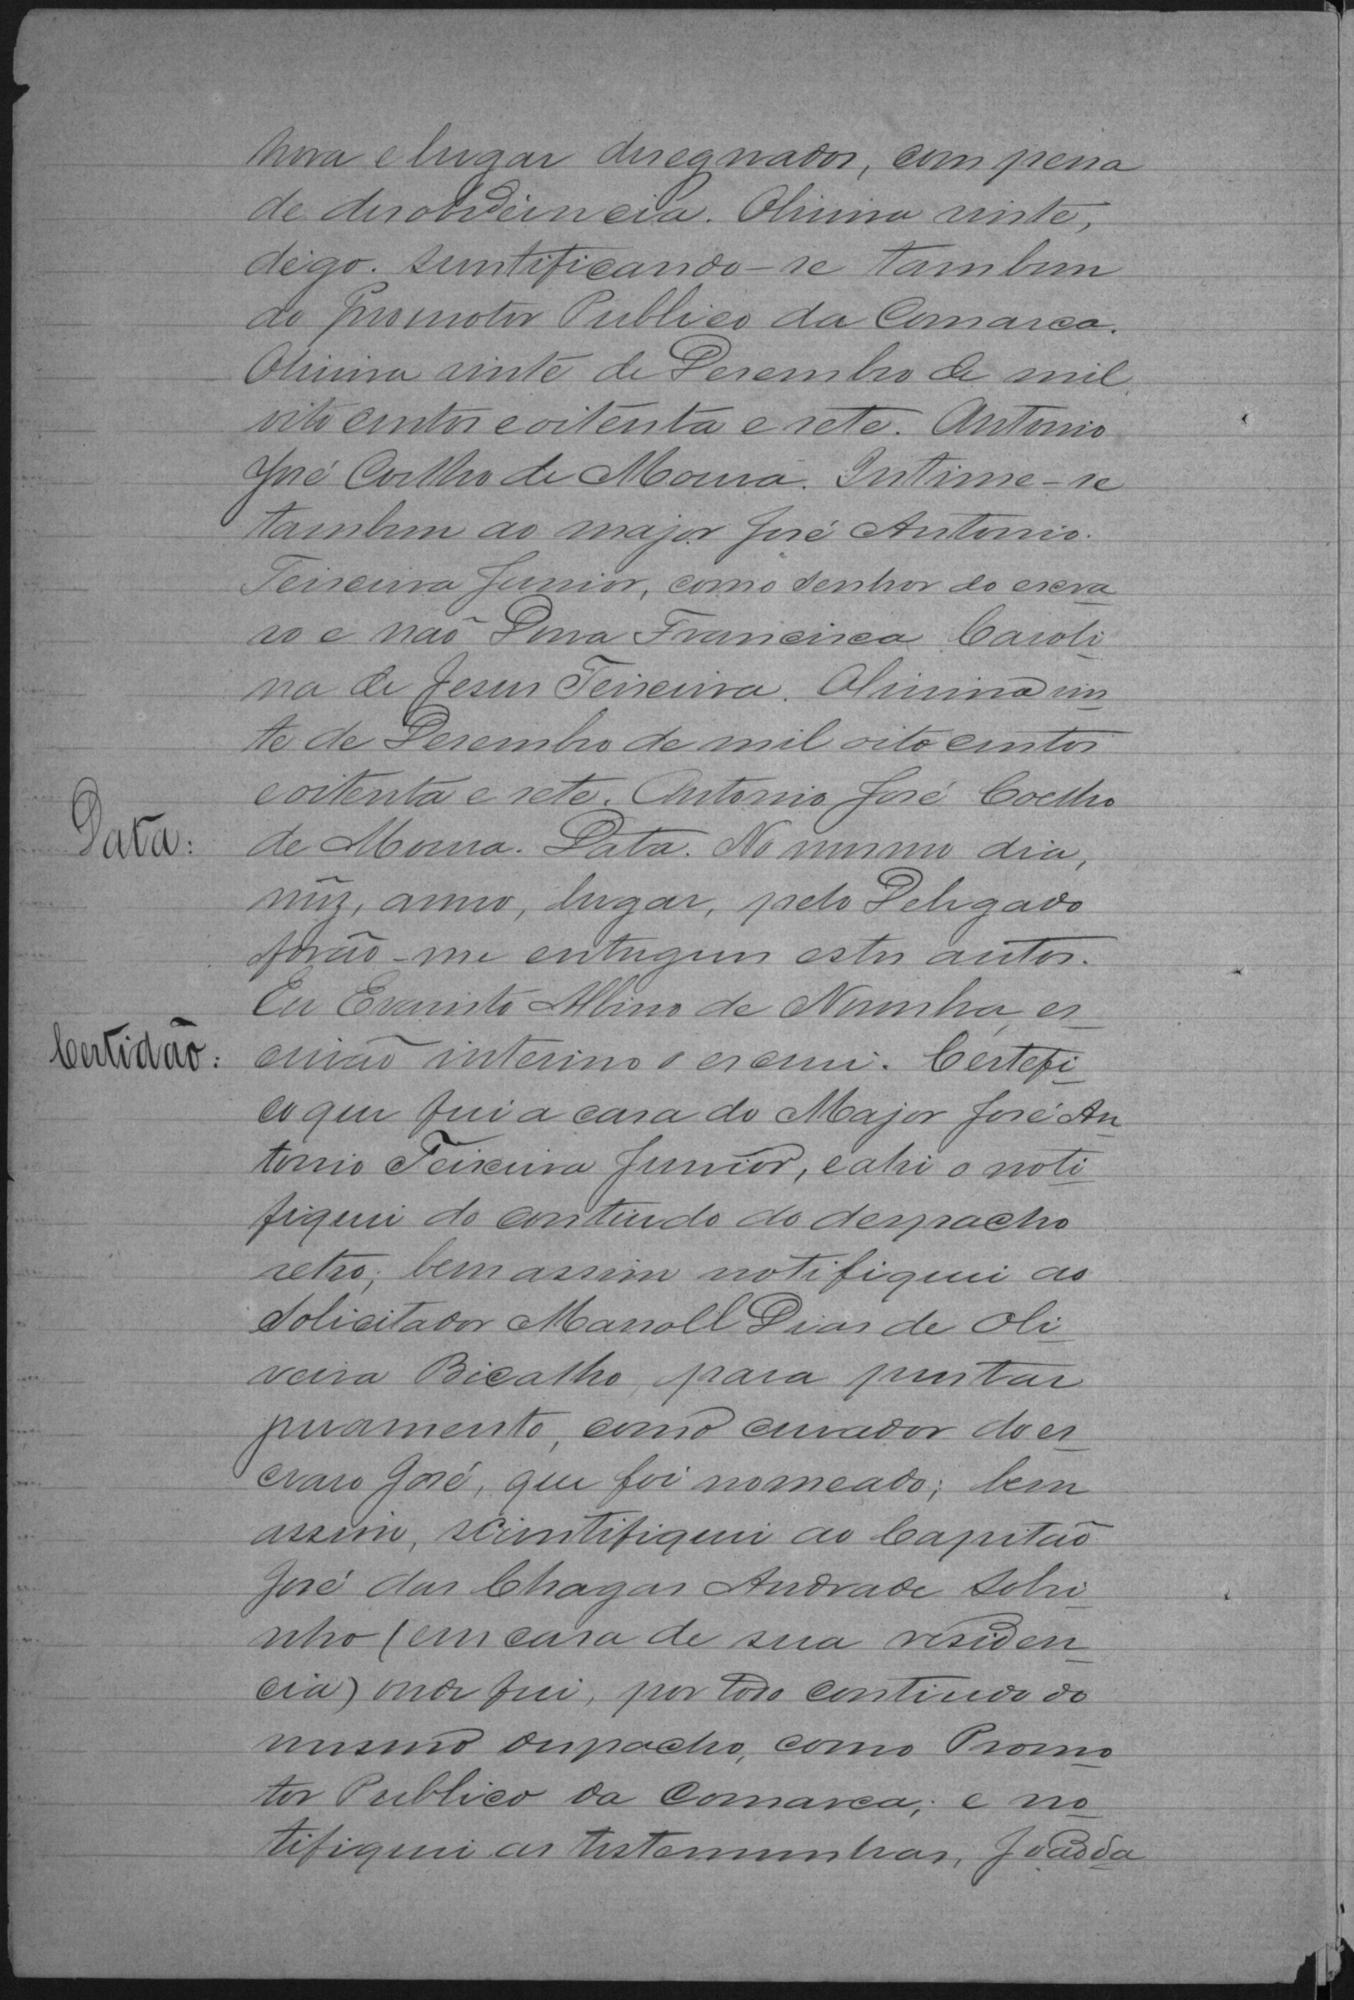 hora e lugar designados, com pena
de desobdiencia. Oliveira vinte,
digo. sientificando-se tambem
ao Promotor Publico da Comarca.
Oliveira vinte de Desembro de mil
oito centos e oitenta e sete. Antonio
José Coelho de Moura. Intime-se
tambem ao major José Antonio
Teixeira Junior, como senhor do escra
vo e não Dona Francisca Caroli
na de Jesus Teixeira. Oliveira vin
te de Desembro de mil oito centos
e oitenta e sete. Antonio José Coelho
Data: de Moura. Data. No mesmo dia,
mêz, anno, lugar, pelo Delegado
forão-me entregues estes autos.
Eu Evaristo Albino de Noronha, es
Certidão: crivão interino o escrevi. Certefi
co que fui a casa do Major José An
tonio Teixeira Junior, e ahi o noti
fiquei do conteudo do despacho
retro; bem assim notifiquei ao
Solicitador Manoell Dias de Oli
veira Bicalho, para prestar
juramento, como curador do es
cravo José, que foi nomeado; bem
assim, scientifiquei ao Capitão
José das Chagas Andrade Sobri
nho (em casa de sua residen
cia) onde fui, por todo contiudo do
mesmo despacho, como Promo
tor Publico da Comarca; e no
tifiquei as testemunhas, João da